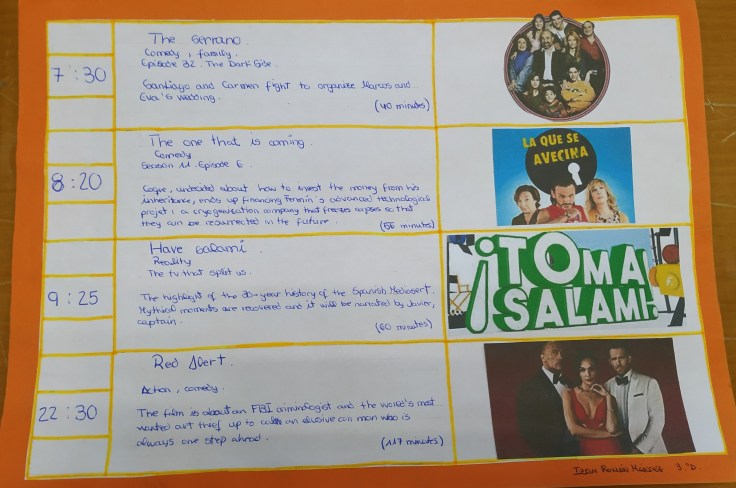 The Serrano.
Comedy, family.
Episode 32. The Dark Side.
7:30
Santiago and Carmen fight to organize Marcos and
Eva's wedding.
(40 minutes)
The one that is coming.
Comedy
Season 11. Episode 6.
8:20
Coque, undecided about how to invest the money from his
inheritance, ends up financing Fermin's advanced technological
projet: a cryogenisation company that freezes corpses so that
they can be resurrected in the future.
(56 minutes)
LA QUE SE
AVECINA
Have Salami
Reality
The tv that split us.
9:25
The highlight of the 30-year history of the Spanish Mediaset.
Mythical moments are recovered and it will be narrated by Javier,
captain.
(60 minutes)
¡TOMA
SALAMI!
Red Alert.
Action, comedy.
22:30
The film is about an FBI criminologist and the world's most
wanted art thief up to catch an elusive con man who is
always one step ahead.
(117 minutes)
Román 3.ºD